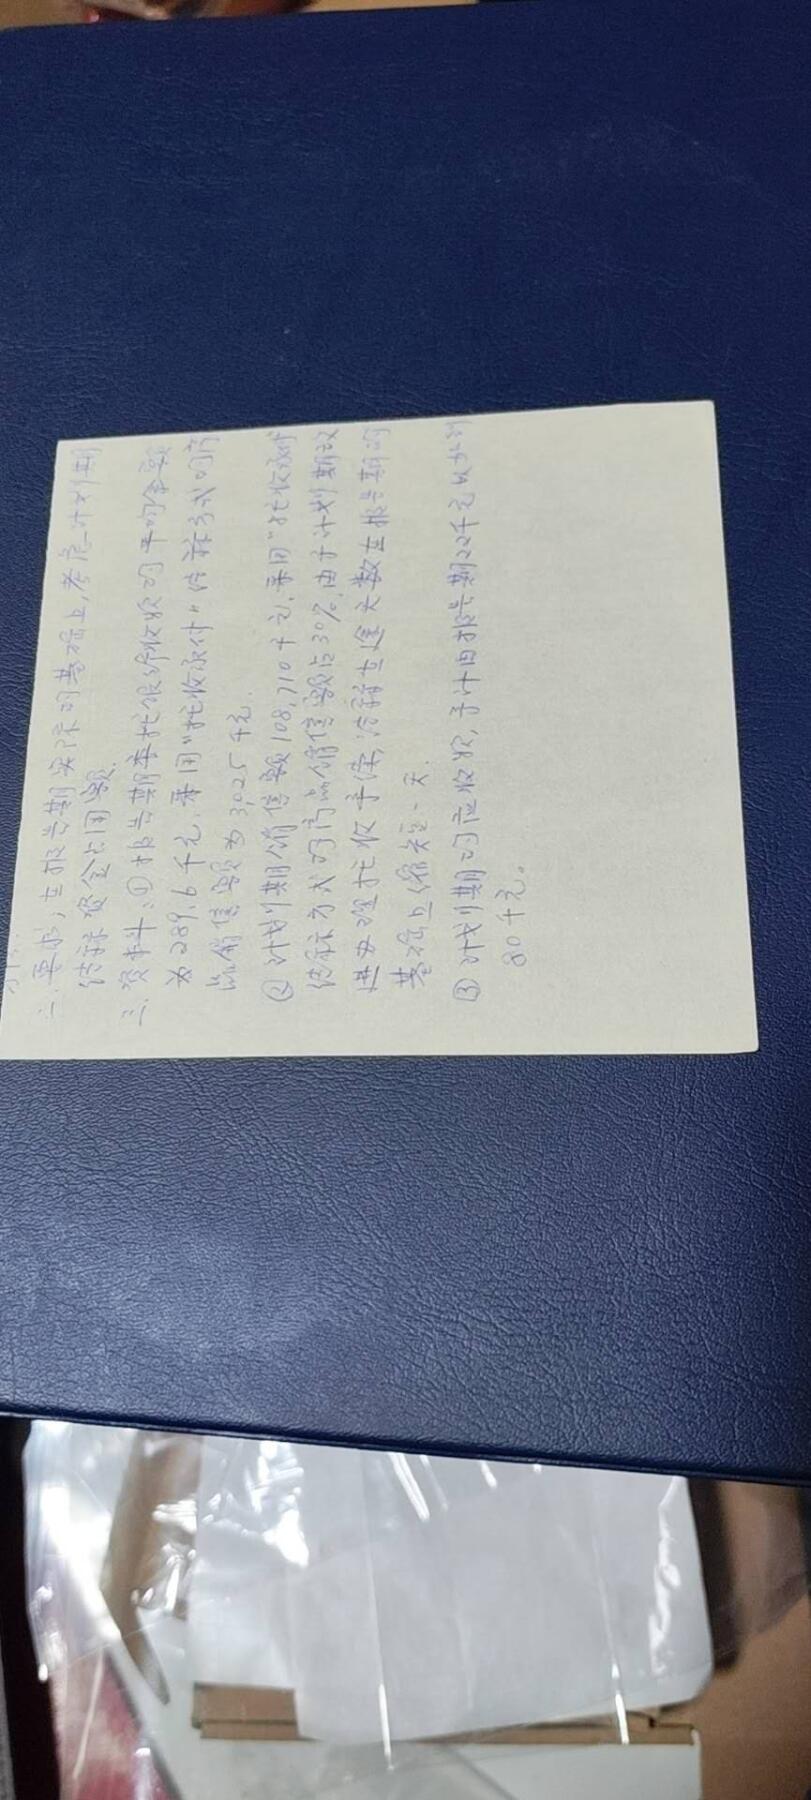 二.要求;在报告期实际的基础上,考虑计划期
结算资金占用额.
三.资料:①报告期委托银行收款的平均余额
为289.6千元.采用"托收承付"结算方式的商
品销售额为3,025千元.
②计划期销售额108,710千元.采用"托收承付
结算方式的商品销售额占30%.由于计划期改
进办理托收手续,结算在途天数在报告期的
基础上缩短一天.
③计划期的应收款,予计由报告期22千元
80千元。